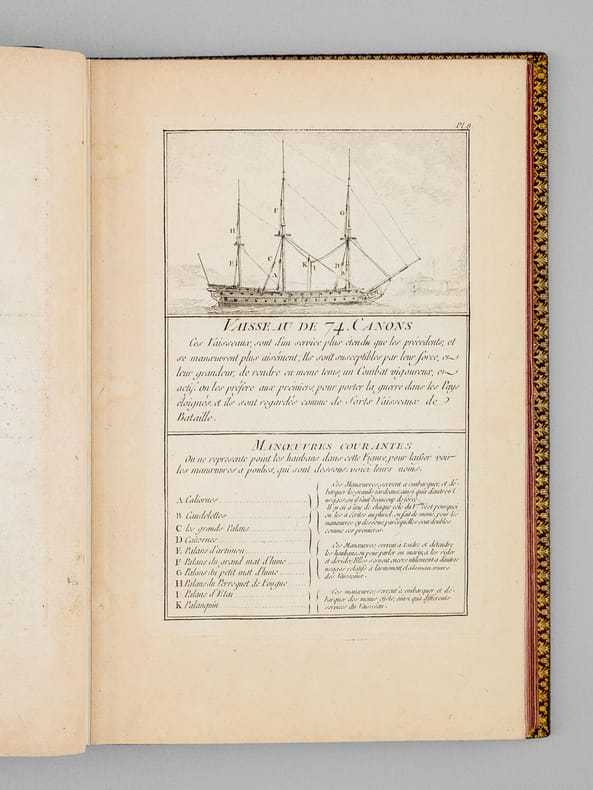 Pl. 8
H
F
G
E
C
A
K
I
D
B
VAISSEAU DE 74. CANONS
Ces Vaisseaux, sont d'un service plus etendu que les precedents, et
se manœuvrent plus aisément; Ils sont susceptibles par leur force, et
leur grandeur, de rendre en meme tems, un Combat vigoureux, et
actif. On les préfére aux premiers, pour porter la guerre dans les Pays
éloignés, et ils sont regardés comme de Forts Vaisseaux de
Bataille.
MANŒUVRES COURANTES
On ne represente point les haubans dans cette Figure, pour laisser voir
les manœuvres à poulies, qui sont dessous. voici leurs noms.
A Caliornes
B Candelettes
C les grands Palans
D Caliornes
E Palans d'artimon
F Palans du grand mat d'hune
G Palans du petit mat d'hune
H Palans du Perroquet de Fougue
I Palans d'Etai
K Palanquin
Ces Manœuvres, servent à embarquer, et dé-
barquer les grands fardeaux, ainsi qu'à d'autres
usages, où il faut beaucoup de force.
Il y en a une de chaque coté du V.au c'est pourquoi
on les à écrites au pluriel, on fait de même, pour les
manœuvres cy dessous, parcequ'elles sont doubles
comme ces premieres.
Ces Manœuvres, servent à tendre et détendre
les haubans, ou pour parler en marin, à les rider
et derider. Elles servent encore utilement a dautres
usages relatifs à
des Vaisseaux.
Ces manœuvres, servent à embarquer et dé-
barquer des moins objets, ainsi qu'à différents
services du Vaisseau.
7